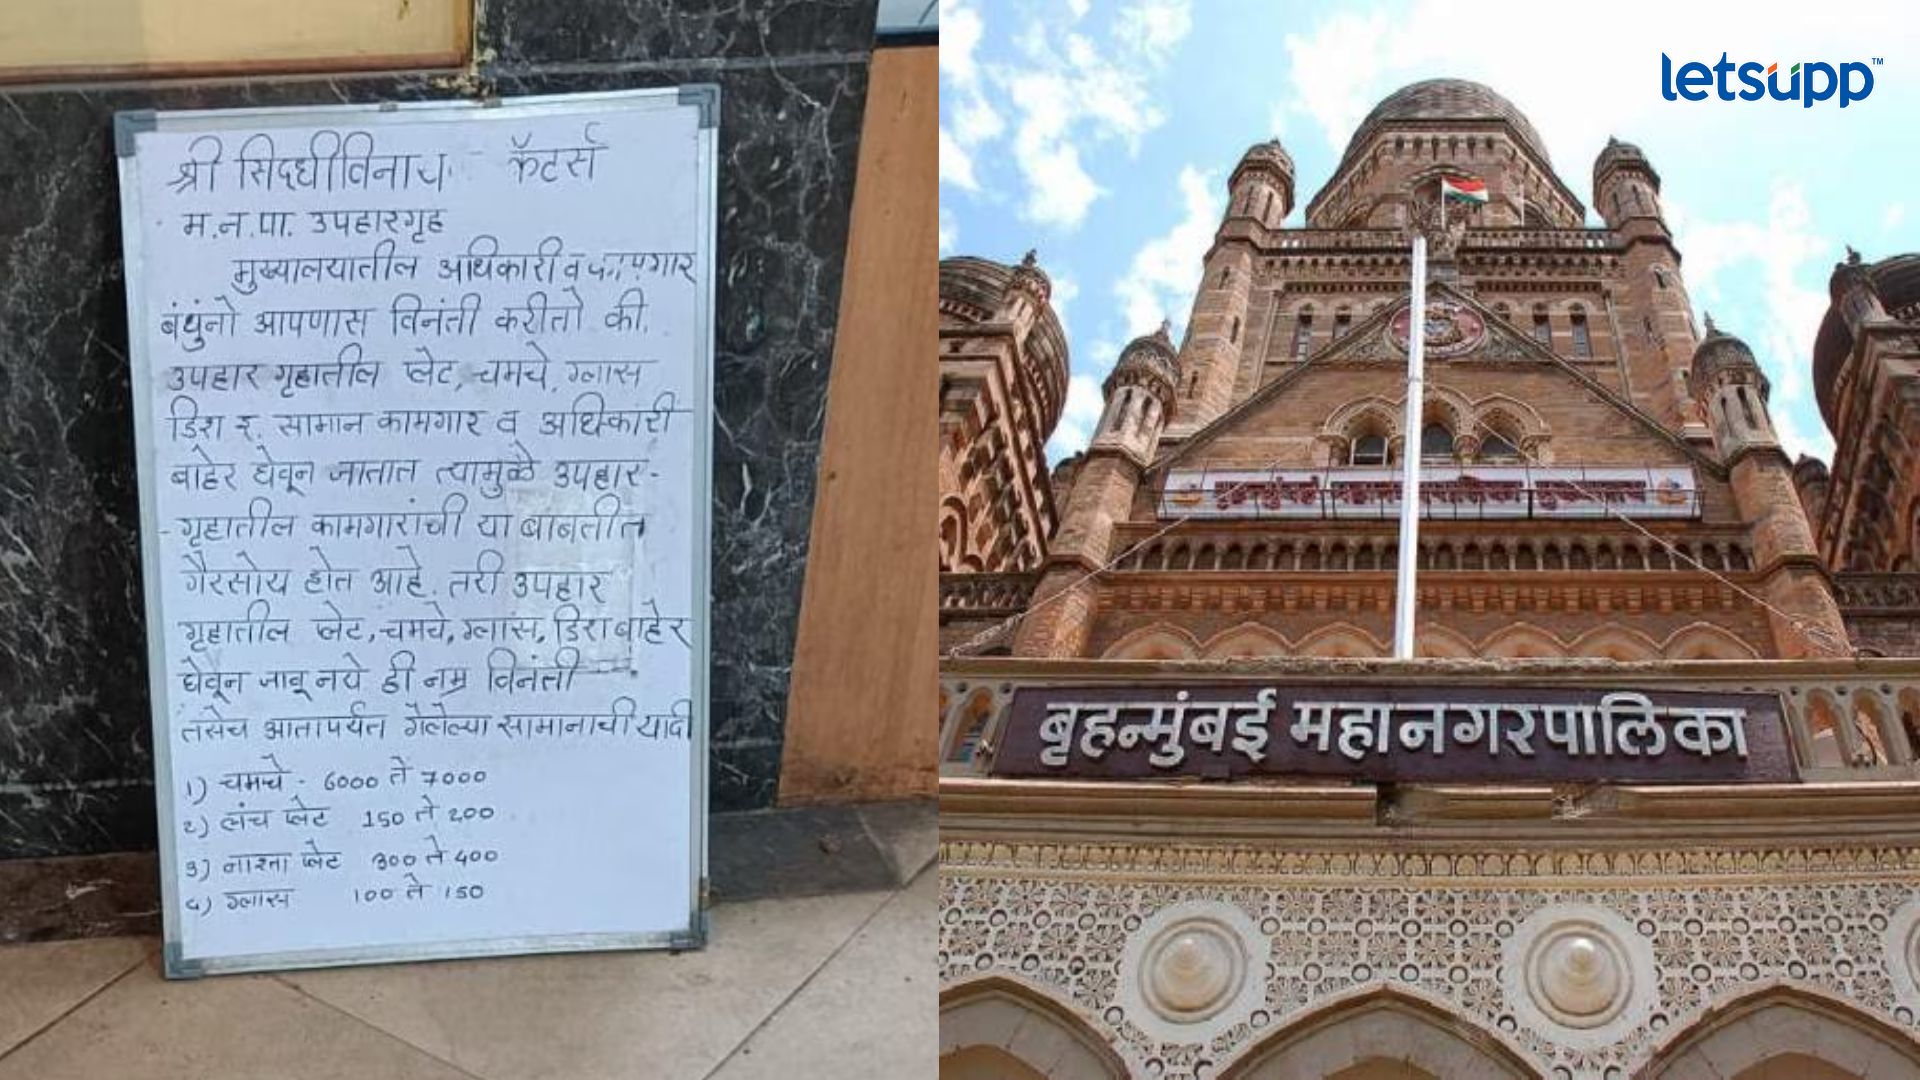 श्री सिध्धीविनाय कॅटर्स
म.न.पा. उपहारगृह
मुख्यालयातील अधिकारी व कामगार
बंधुंनो आपणास विनंती करीतो की.
उपहार गृहातील प्लेट, चमचे, ग्लास
डिश इ. सामान कामगार व अधिकारी
बाहेर घेवून जातात त्यामुळे उपहार-
-गृहातील कामगारांची या बाबतीत
गैरसोय होत आहे. तरी उपहार
गृहातील प्लेट, चमचे, ग्लास, डिश बाहेर
घेवून जावू नये ही नम्र विनंती
तसेच आतापर्यंत गेलेल्या सामानाची यादी
१) चमचे - 6000 ते 7000
२) लंच प्लेट 150 ते 200
३) नाश्ता प्लेट 300 ते 400
४) ग्लास 100 ते 150
letsupp™
बृहन्मुंबई महानगरपालिका